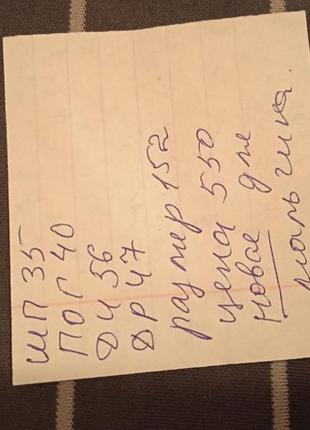 ШП 35
ПОГ 40
ДИ 56
ДР 47
размер 152
цена 550
новое для
мальчика.